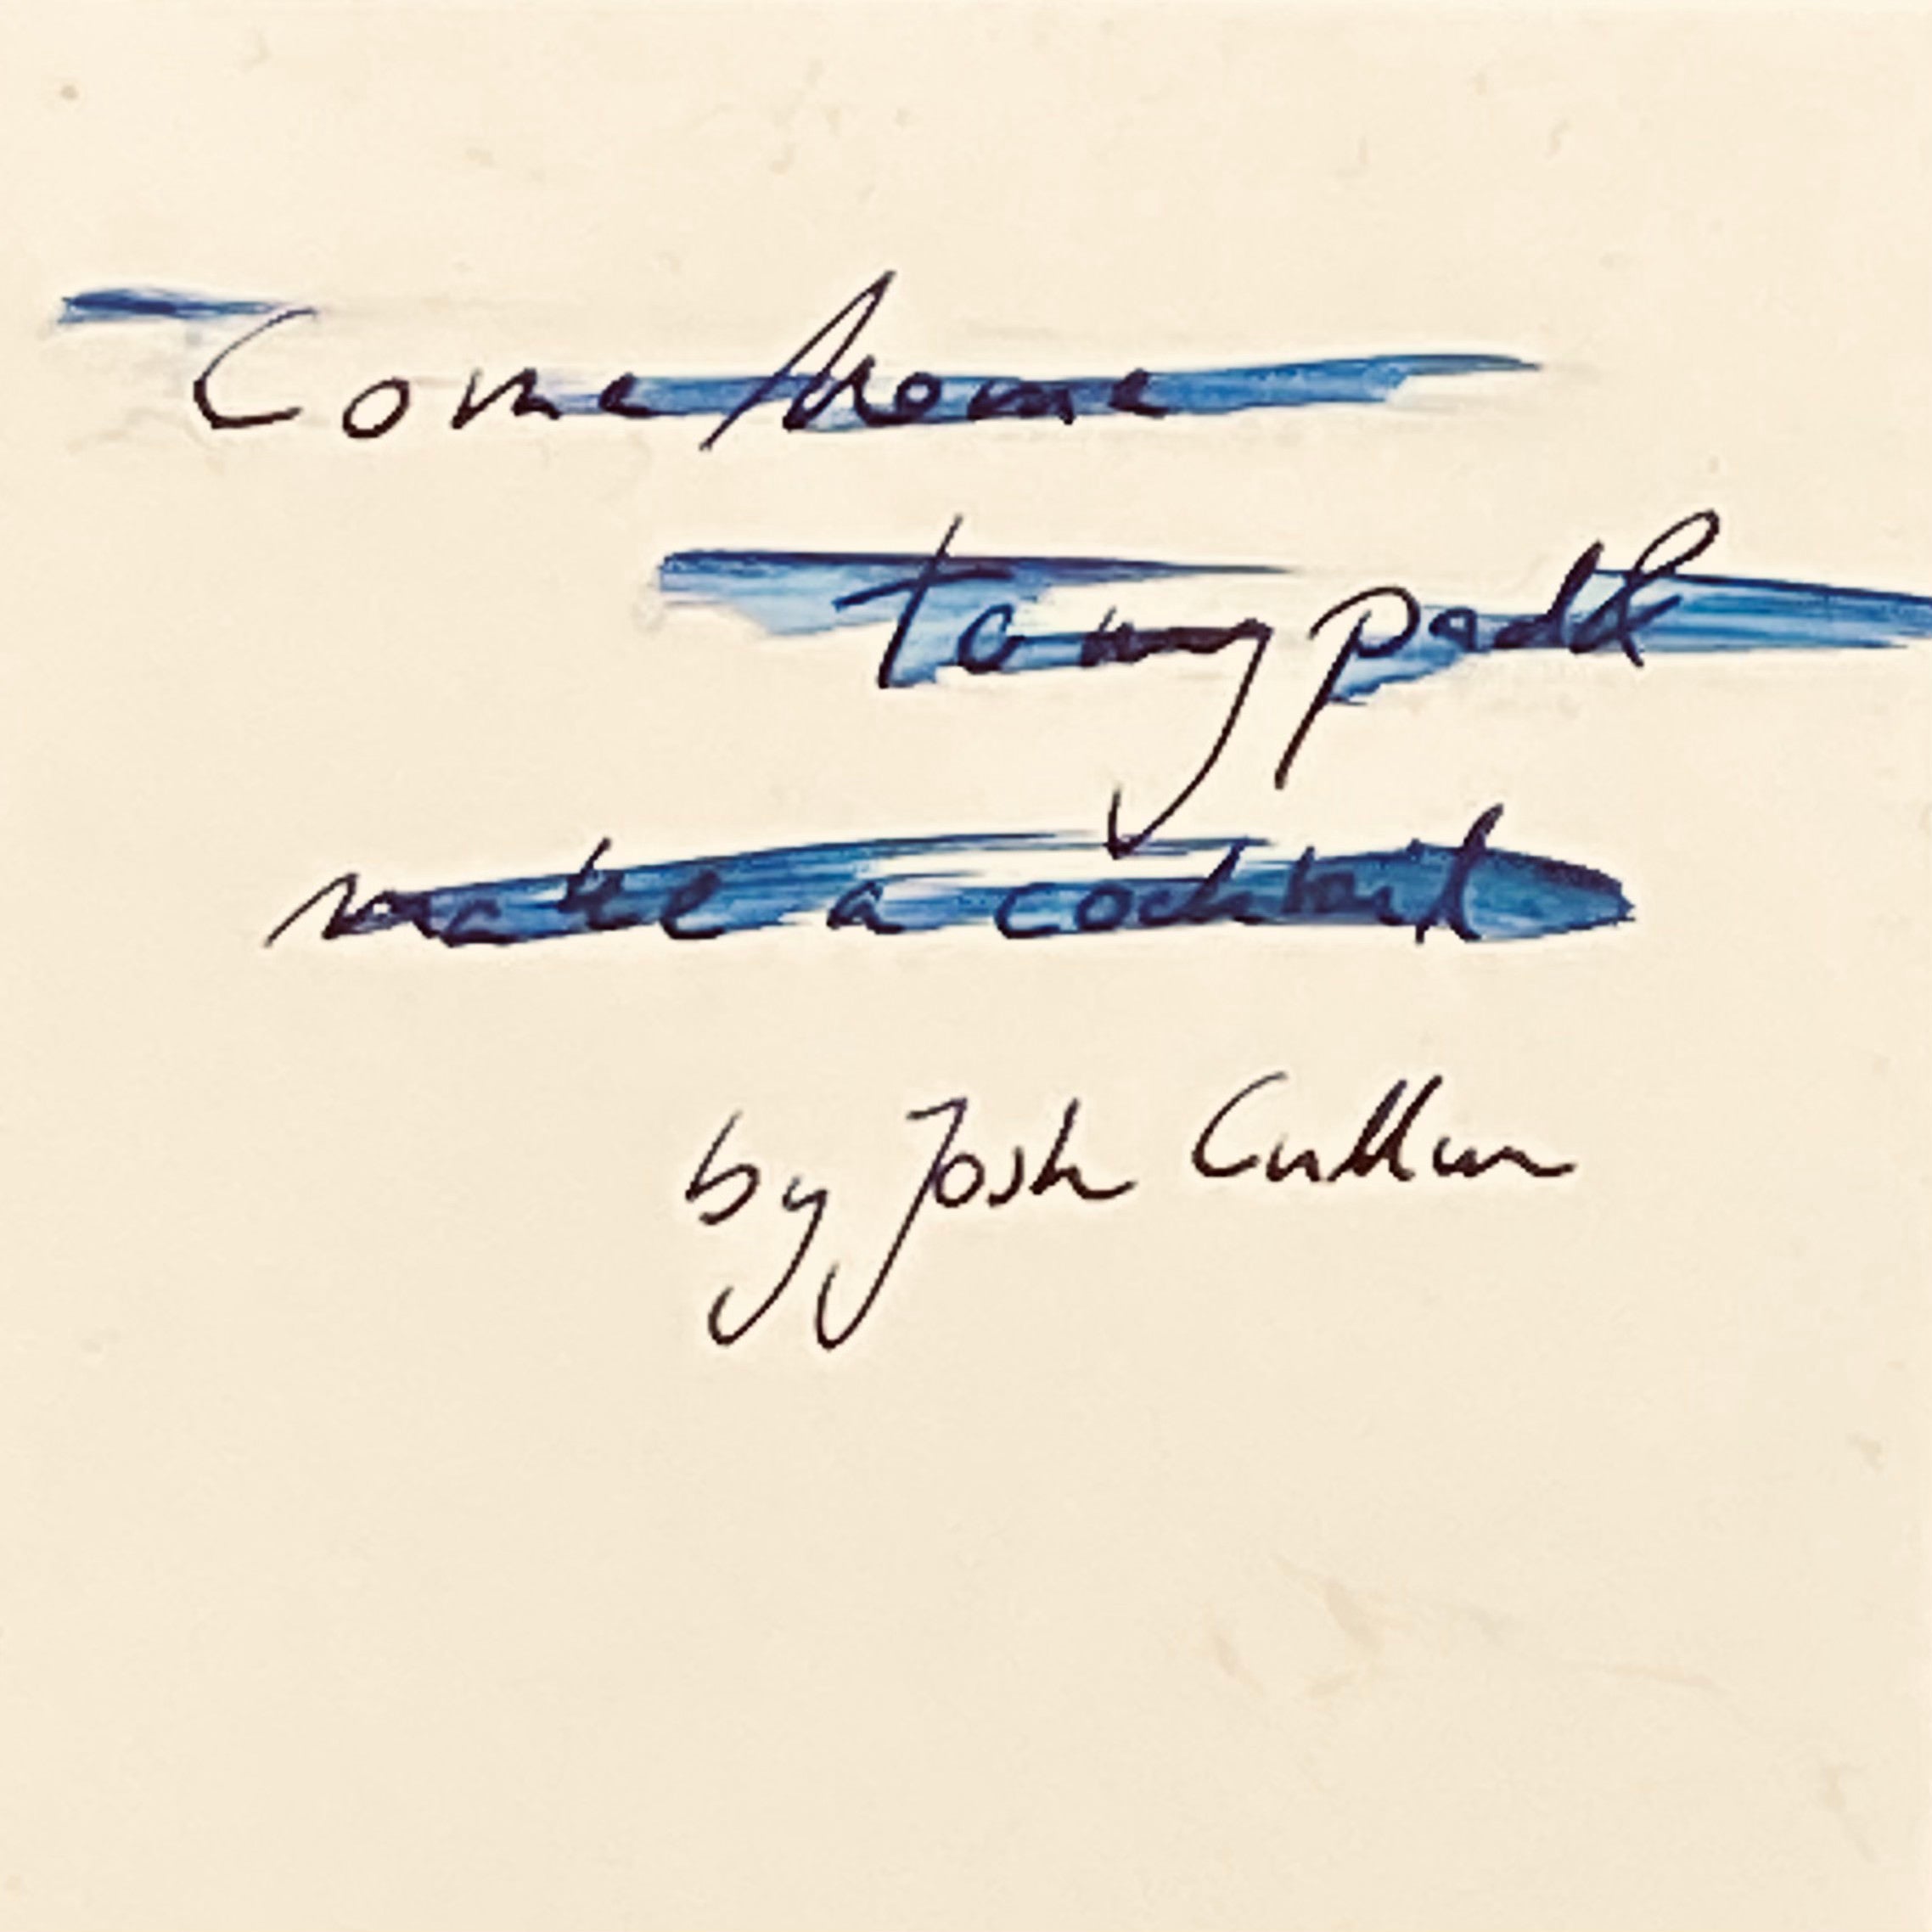 Come home
to my pad &
make a cocktail
by Josh Cullum